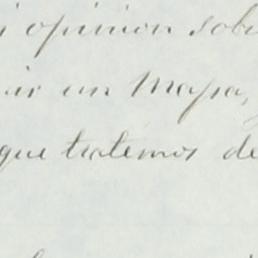 i opinion sob
ir un Mapa,
que tratemos de